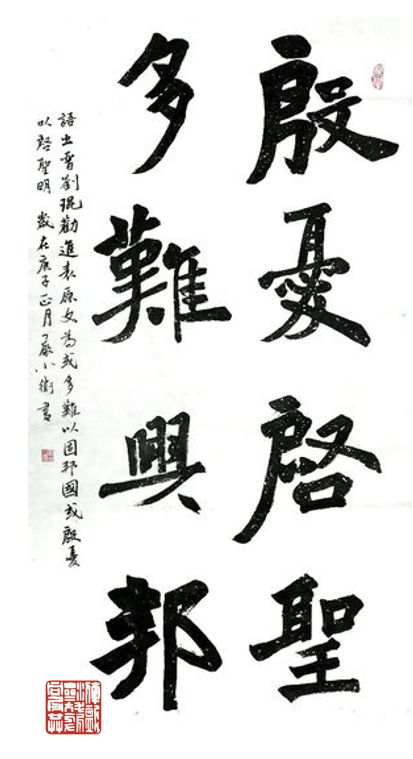 殷憂啓聖
多難興邦
語出晉劉琨勸進表原文為或多難以固邦國或殷憂
以啓聖明 歲在庚子正月 嚴小衡書